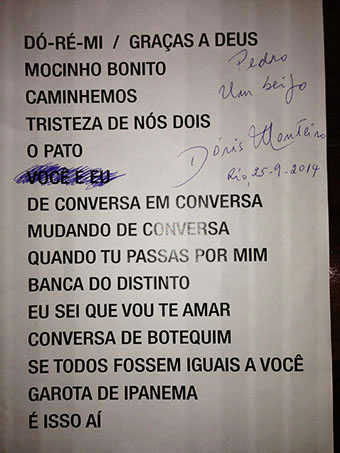 DÓ-RÉ-MI / GRAÇAS A DEUS
MOCINHO BONITO
CAMINHEMOS
TRISTEZA DE NÓS DOIS
O PATO
VOCÊ E EU
DE CONVERSA EM CONVERSA
MUDANDO DE CONVERSA
QUANDO TU PASSAS POR MIM
BANCA DO DISTINTO
EU SEI QUE VOU TE AMAR
CONVERSA DE BOTEQUIM
SE TODOS FOSSEM IGUAIS A VOCÊ
GAROTA DE IPANEMA
É ISSO AÍ
Pedro
Um beijo
Dóris Monteiro
Rio, 25-9-2014